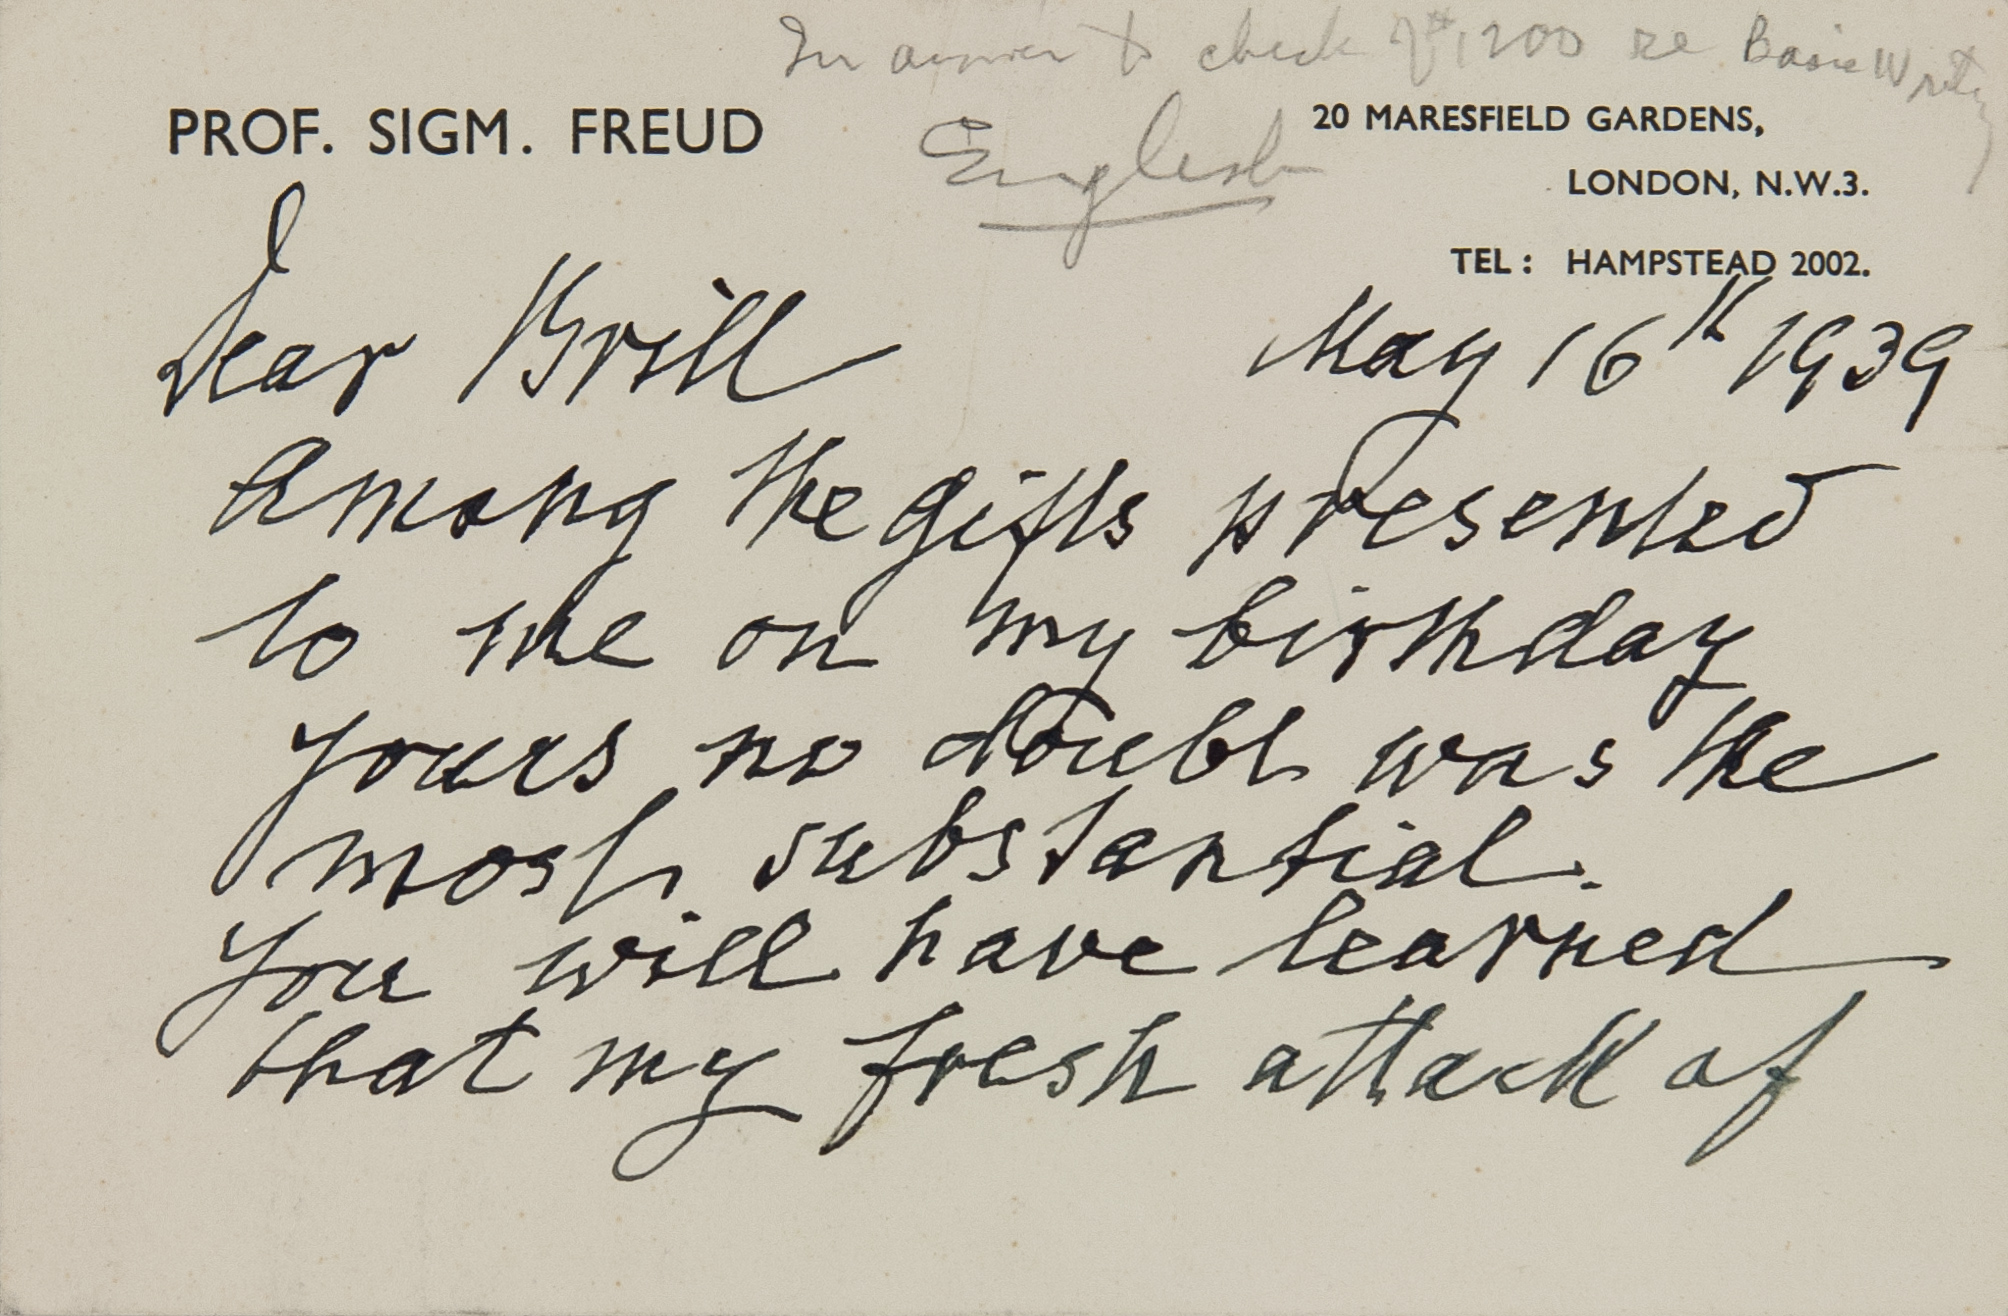 In answer to check of $1200 re Basic Writing
English
PROF. SIGM. FREUD
20 MARESFIELD GARDENS,
LONDON, N.W.3.
TEL: HAMPSTEAD 2002.
Dear Brill
May 16th 1939
Among the gifts presented
to me on my birthday
yours no doubt was the
most substantial.
You will have learned
that my fresh attack of